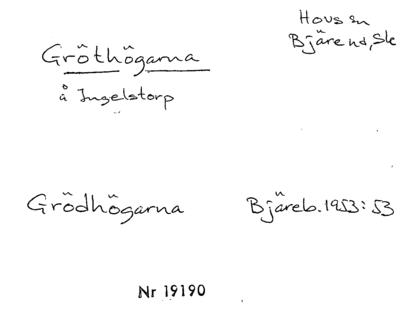 Hovs sn
Bjäre hd, Sk
Gröthögarna
å Ingelstorp
Grödhögarna Bjäreb. 1953: 53
Nr 19190